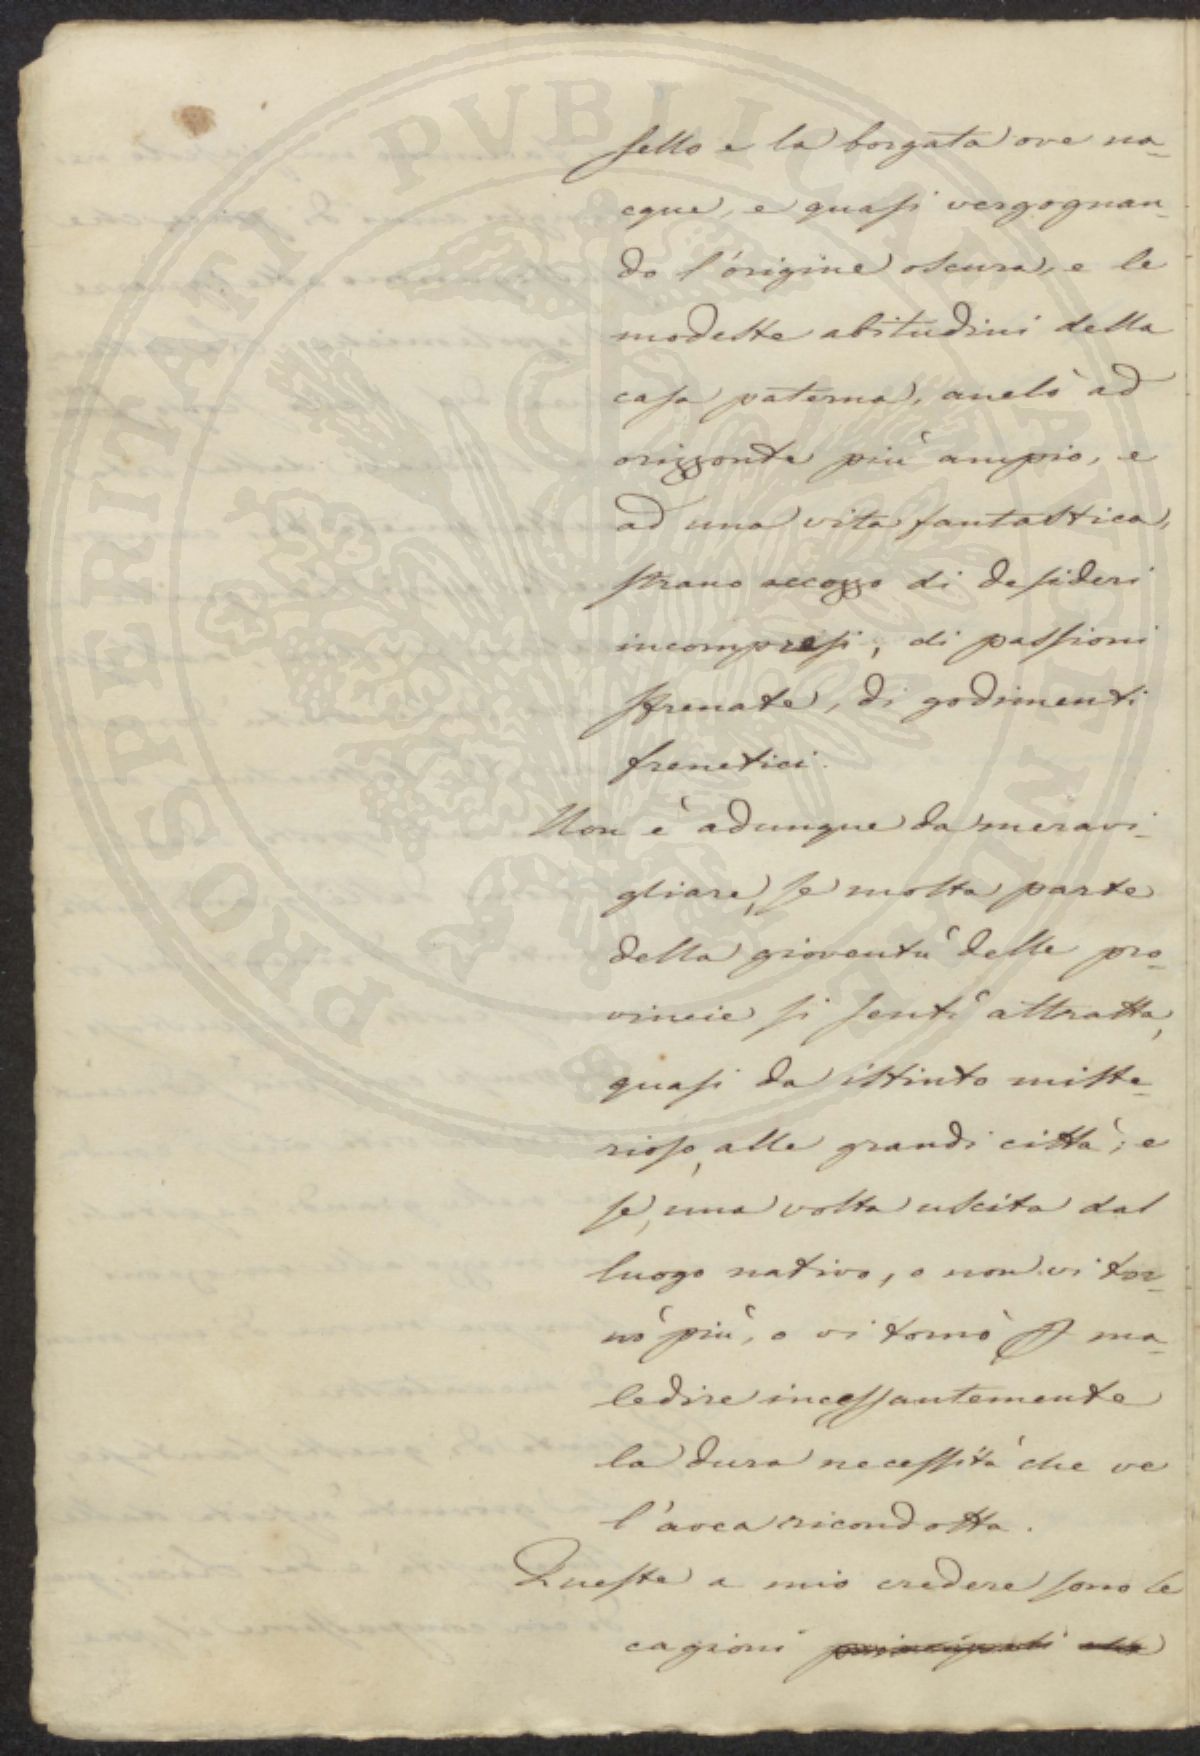 sello e la borgata ove na-
cque, e quasi vergognan-
do l'origine oscura, e le
modeste abitudini della
casa paterna, anelò ad
orizzonte più ampio, e
ad una vita fantastica,
strano accozzo di desideri
incompresi, di passioni
sfrenate, di godimenti
frenetici.
Non è adunque da meravi-
gliare, se molta parte
della gioventù delle pro-
vincie si sentì attratta,
quasi da istinto miste-
rioso, alle grandi città; e
se, una volta uscita dal
luogo nativo, o non vi tor-
nò più, o vi tornò p ma-
ledire incessantemente
la dura necessità che ve
l'avea ricondotta.
Queste a mio credere sono le
cagioni principali che
PROSPERITATI PVBLICAE AVGENDAE